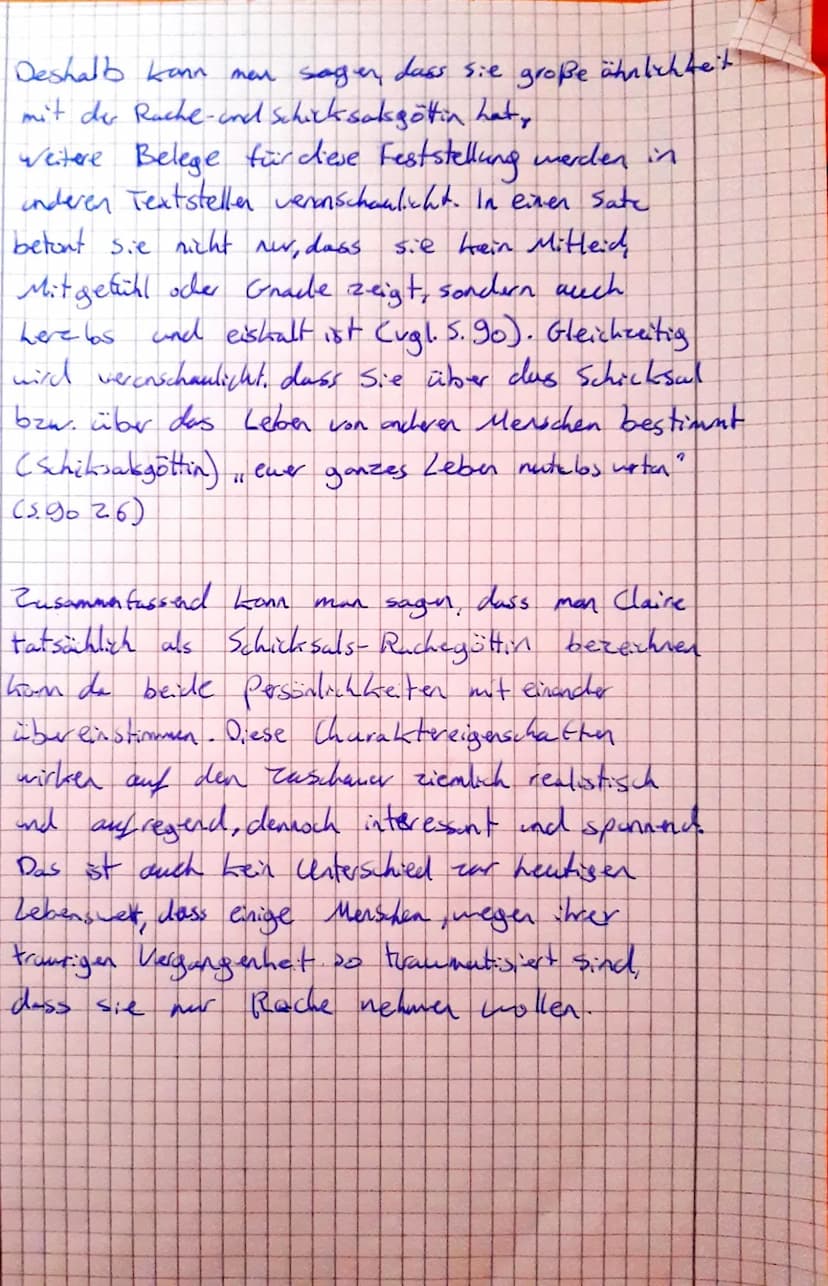 Deshalb kann man sagen, dass sie große ähnlichkeit
mit der Rache-und Schicksalsgöttin hat,
weitere Belege für diese Feststellung werden in
anderen Textstellen veranschaulicht. In einen Satz
betont sie nicht nur, dass sie kein Mitleid,
Mitgefühl oder Gnade zeigt, sondern auch
herzlos und eiskalt ist (vgl. S. 90). Gleichzeitig
wird veranschaulicht, dass sie über das Schicksal
bzw. über das Leben von anderen Menschen bestimmt
(Schiksalsgöttin) „ euer ganzes Leben nutzlos
(S.90 Z6)
Zusammenfassend kann man sagen, dass man Claire
tatsächlich als Schicksals-Rachegöttin bezeichnen
kann da beide Persönlichkeiten mit einander
übereinstimmen. Diese Charaktereigenschaften
wirken auf den Zuschauer ziemlich realistisch
und aufregend, dennoch interessant und spannend.
Das ist auch kein Unterschied zur heutigen
Lebenswelt, dass einige Menschen, wegen ihrer
traurigen Vergangenheit so traumatisiert sind,
dass sie nur Rache nehmen wollen.